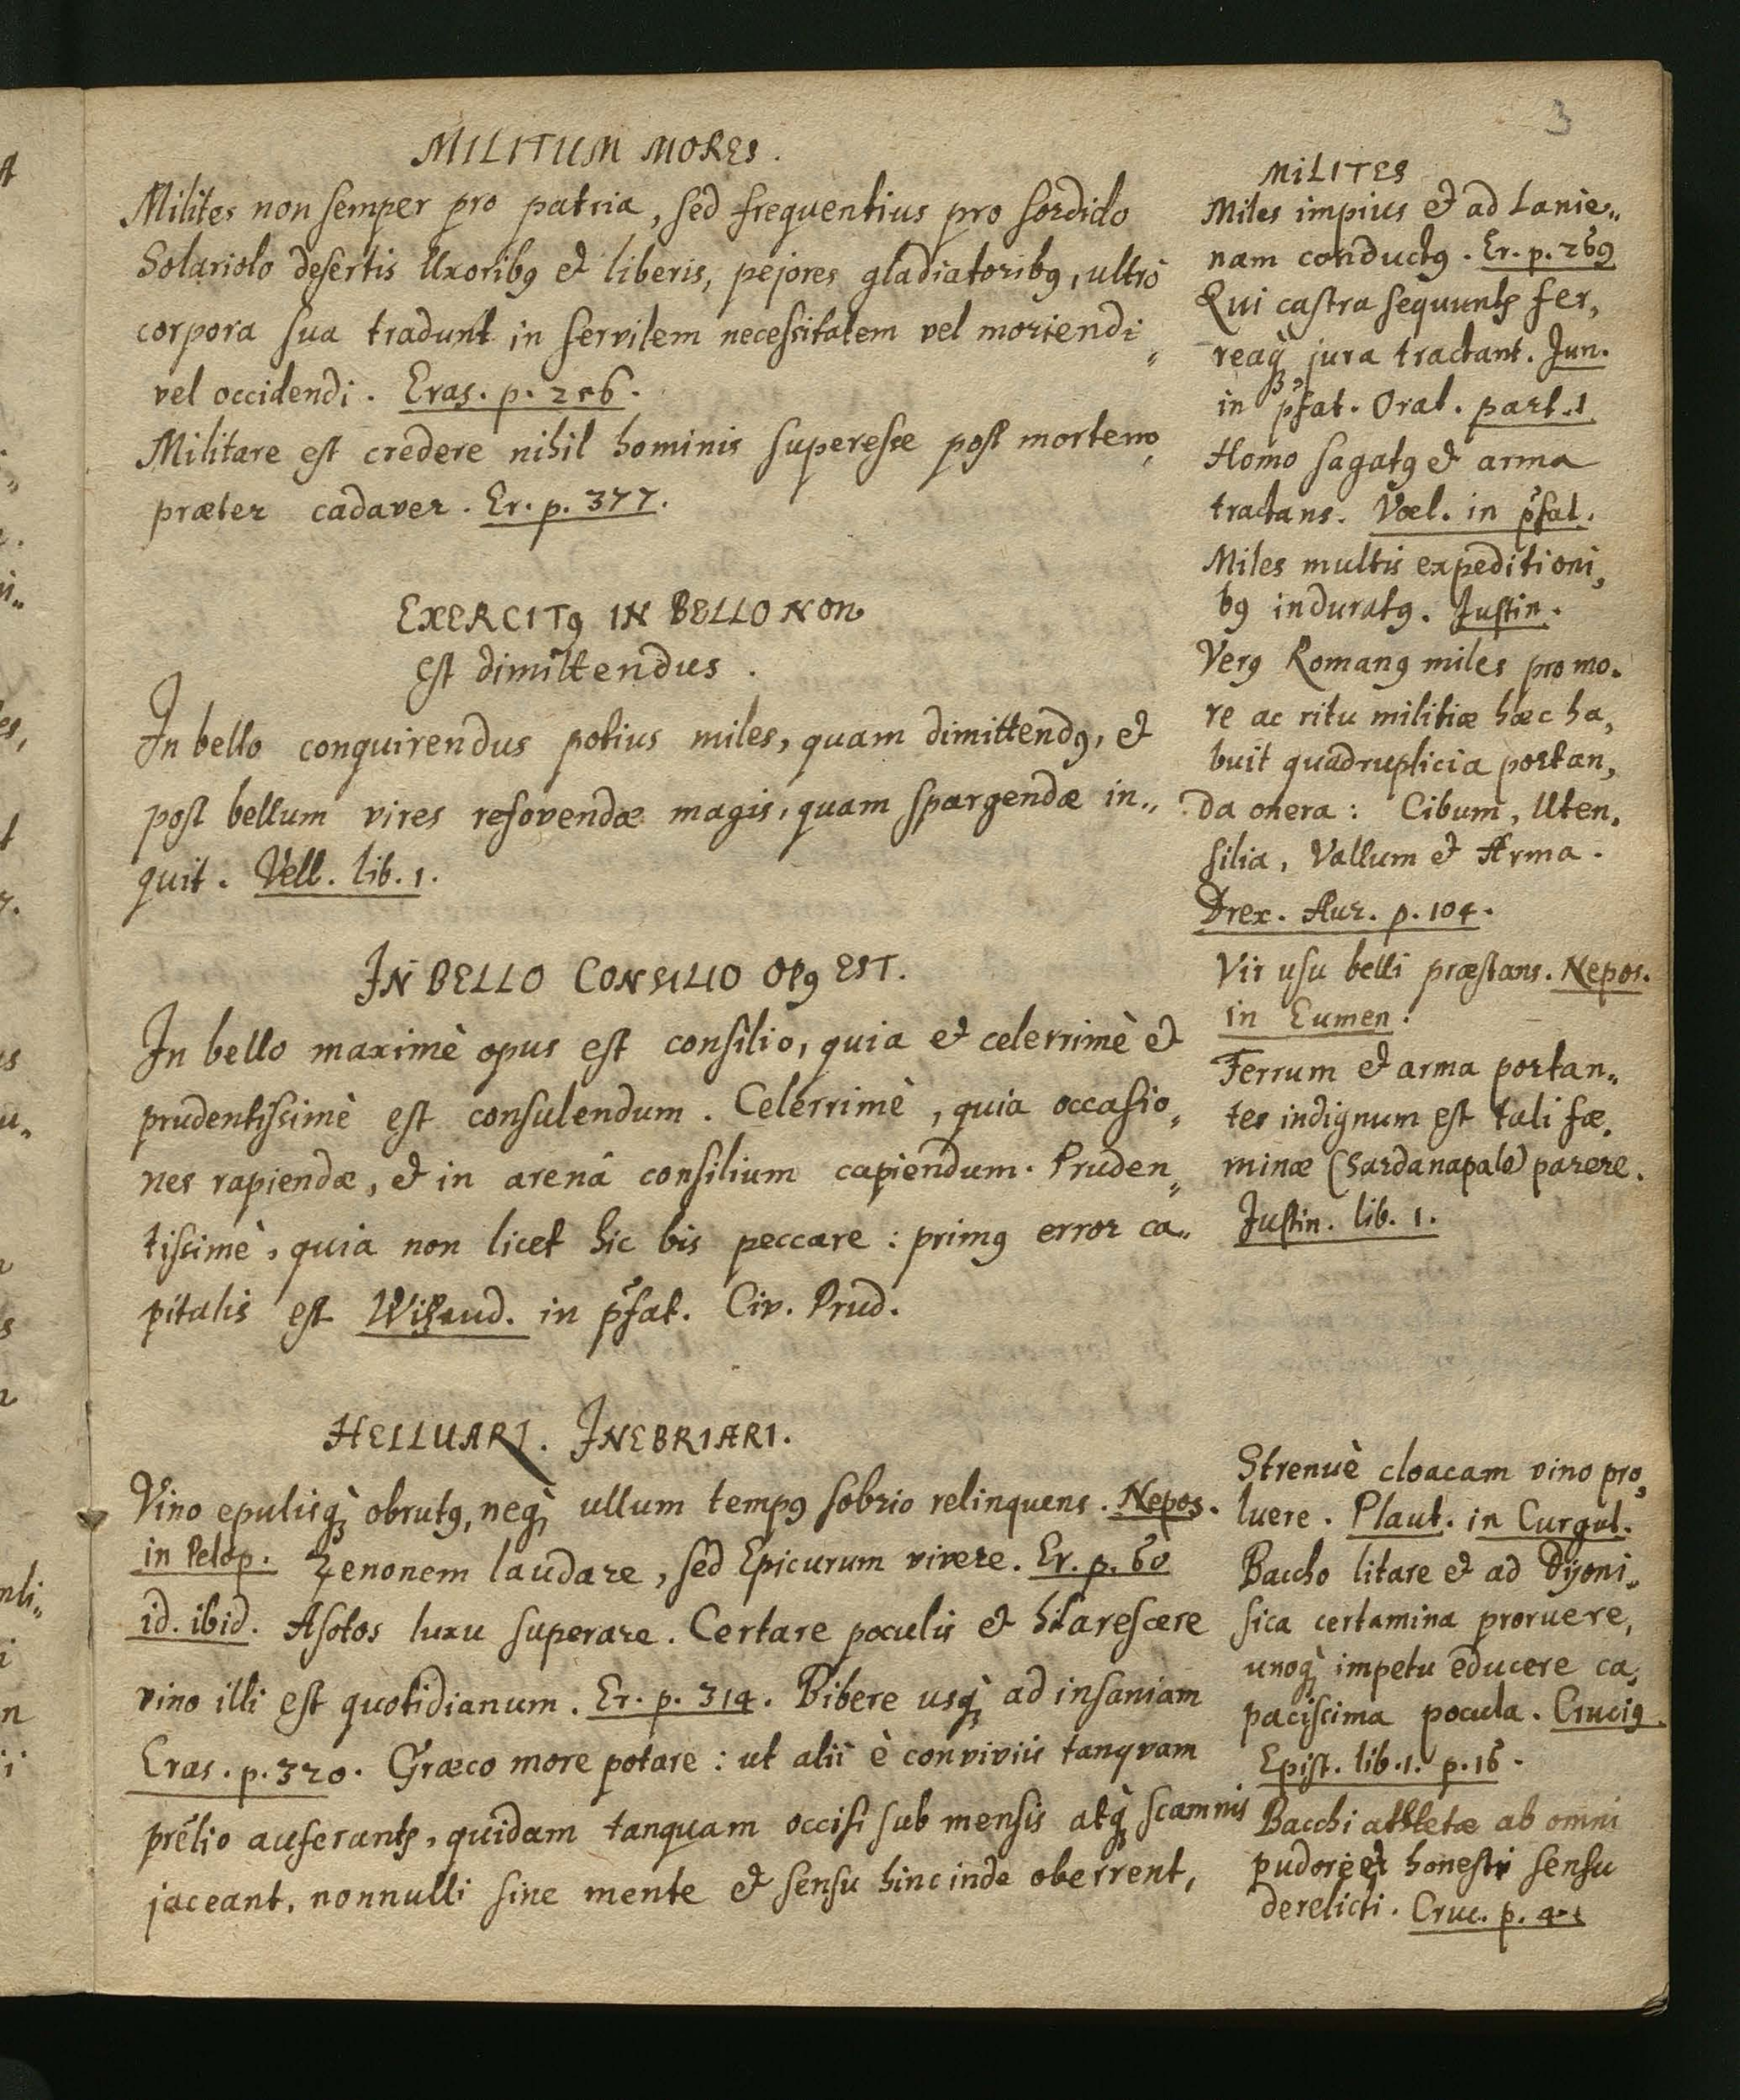 3
MILITUM MORES.
Milites non semper pro patria, sed frequentius pro sordido
Solariolo desertis Uxoribꝰ et liberis, pejores gladiatoribꝰ, ultrò
corpora sua tradunt in servilem necessitatem vel moriendi„
vel occidendi. Eras. p. 256.
Militare est credere nihil hominis superesse post mortem,
præter cadaver. Er. p. 377.
EXERCITꝰ IN BELLO NON
est dimittendus.
In bello conquirendus potius miles, quam dimittendꝰ, et
post bellum vires refovendæ magis, quam spargendæ in„
quit. Vell. lib. 1.
IN BELLO CONSILIO OPꝰ EST.
In bello maximè opus est consilio, quia et celerrimè et
prudentissimè est consulendum. Celerrimè, quia occasio„
nes rapiendæ, et in arenâ consilium capiendum. Pruden„
tissimè, quia non licet hic bis peccare: primꝰ error ca„
pitalis est in p̃fat. Civ. Prud.
HELLUARI. INEBRIARI.
Vino epulisq̀ꝫ obrutꝰ, neq̀ꝫ ullum tempꝰ sobrio relinquens. Nepos.
in Pelop. Zenonem laudare, sed Epicurum vivere. Er. p. 60
id. ibid. Asotos luxu superare. Certare poculis et hilarescere
vino illi est quotidianum. Er. p. 314. Bibere usq̀ꝫ ad insaniam
Eras. p. 320. Græco more potare: ut alii è conviviis tanqvam
prélio auferantꝭ, quidam tanquam occisi sub mensis atq̀ꝫ scamnis
jaceant, nonnulli sine mente et sensu hinc inde oberrent,
MILITES
Miles impius et ad Lanie„
nam conductꝰ. Er. p. 269
Qui castra sequuntꝭ fer,
reaq̀ꝫ jura tractant. Jun.
in p̃fat. Orat. part. 1
Homo sagatꝰ et arma
tractans. Væl. in p̃fat.
Miles multis expeditioni,
bꝰ induratꝰ. Justin.
Verꝰ Romanꝰ miles pro mo.
re ac ritu militiæ hæc ha,
buit quadruplicia portan,
da onera: Cibum, Uten.
silia, Vallum et Arma.
Drex. Aur. p. 104.
Vir usu belli præstans. Nepos.
in Eumen.
Ferrum et arma portan„
tes indignum est tali fæ.
minæ (Sardanapalo) parere.
Justin. lib. 1.
Strenuè cloacam vino pro,
luere. Plaut. in Curgul.
Baccho litare et ad Dÿoni„
sica certamina proruere,
unoq̀ꝫ impetu educere ca,
pacissima pocula. Cruciꝰ.
Epist. lib. 1. p. 16.
Bacchi athletæ ab omni
pudore et honesti sensu
derelicti. Cruc. p.